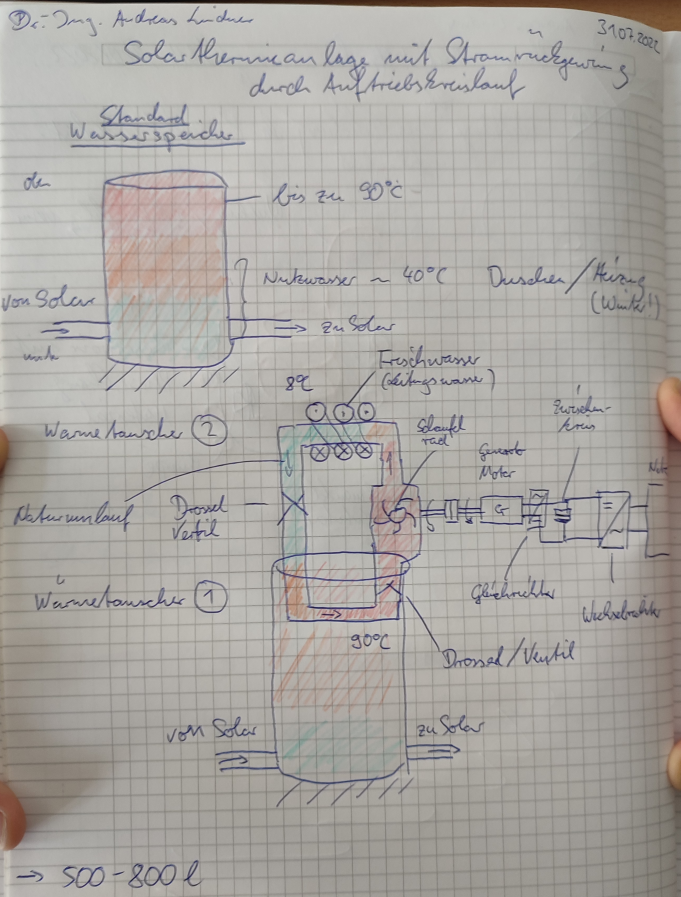 Dr.-Ing. Andreas Lindner
31.07.2022
Solarthermieanlage mit Stromrückgewing
durch Auftriebskreislauf
Standard
Wasserspeicher
oben
bis zu 90°C
Nutzwasser ~ 40°C Duschen / Heizung
(Winter!)
von Solar
zu Solar
unten
Frischwasser
(Leitungswasser)
8°C
Wärmetauscher 2
Schaufel
rad
Generator
Motor
Zwischen-
kreis
Netz
Naturumlauf
Drossel
Ventil
G
Gleichrichter
Wechselrichter
Wärmetauscher 1
90°C
Drossel/Ventil
von Solar
zu Solar
→ 500-800 l